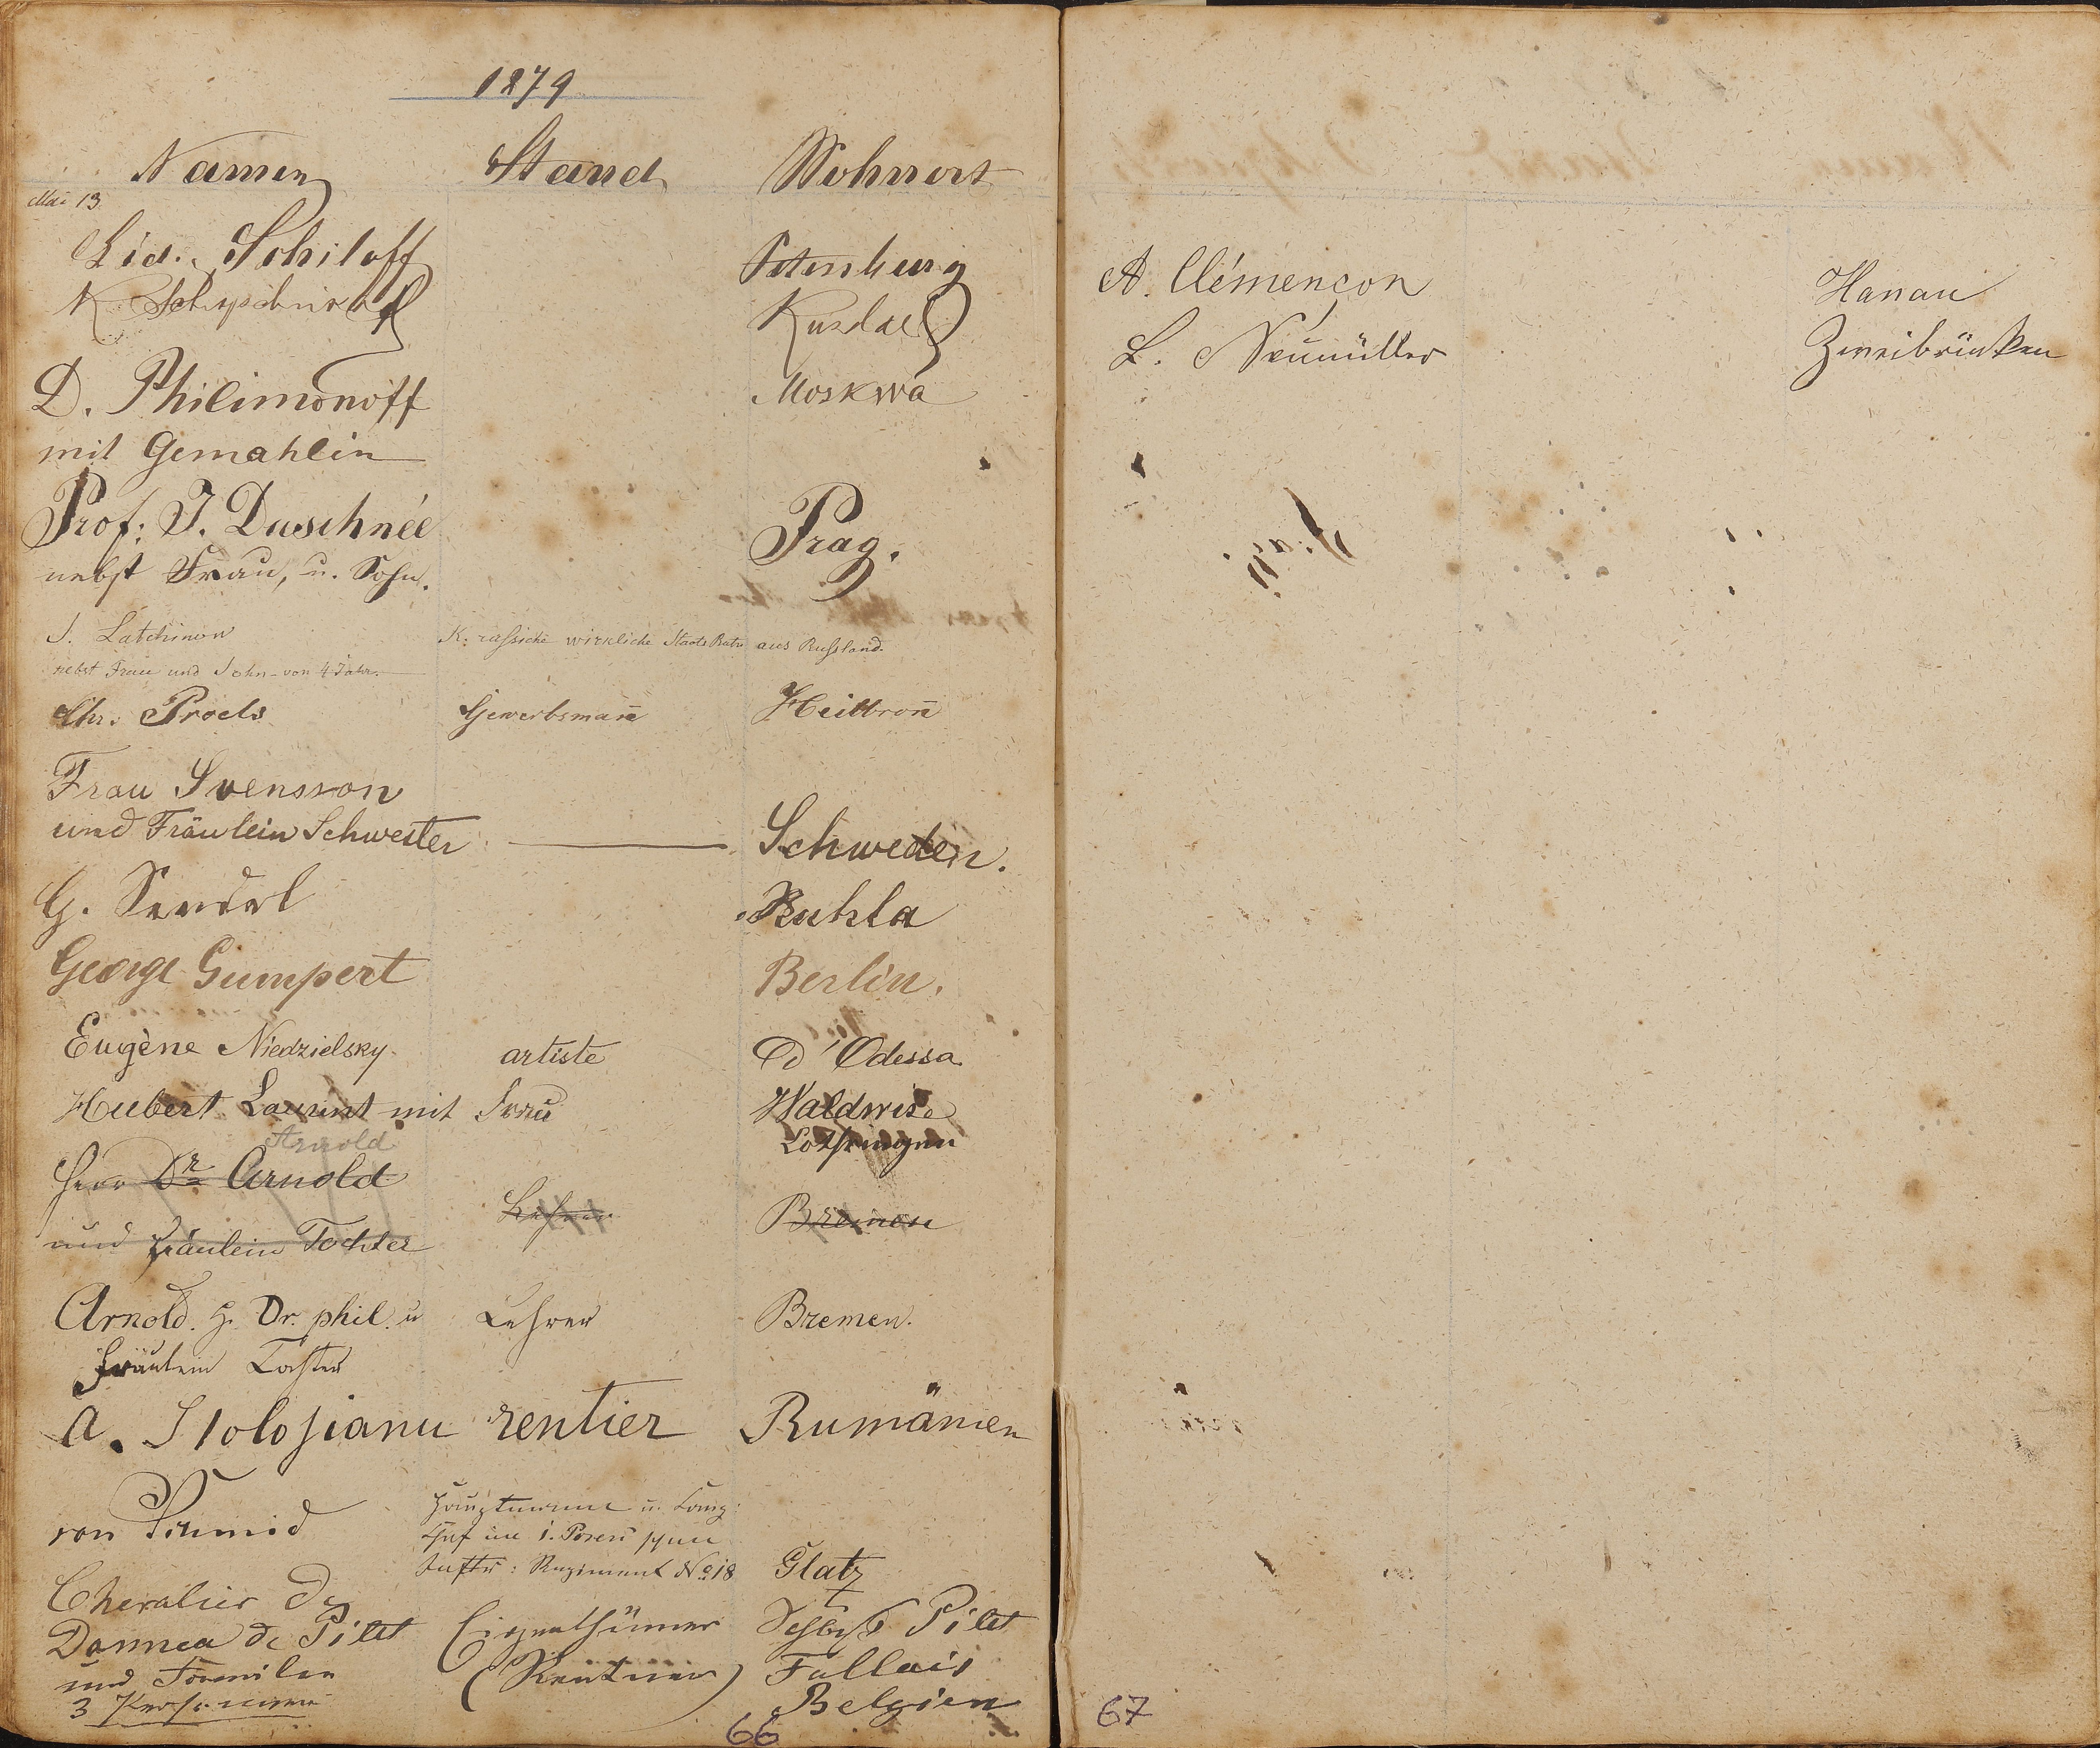 1879
Namen Stand Wohnort
Mai 13
Lid. Schiloff Petersburg
K.
D. Philimonoff Moskwa
mit Gemahlin
Prof: J. Duschnée Prag.
nebst Frau, u. Sohn.
J. Latchinow K. russiche wirkliche Staats Rath aus Russland.
nebst Frau und Sohn - von 4 Jahr.
Chr. Proels Gewerbsmañ Heilbroñ
Frau Svensson
und Fräulein Schwester Schweden.
G. Seidel Ruhla
George Gumpert Berlin.
Eugène Niedzielsky. artiste d'Odessa
Hubert Laurent mit Frau Waldwise
Lothringen
Arnold
Herr Dr Arnold
Lehrer Bremen
und Fräulein Tochter
Arnold. H. Dr. phil. u Lehrer Bremen.
Fräulein Tochter
A. Stolojianu rentier Rumänien
von Schmid Hauptmann u. Comp:
Chef im 1. Posen'schen
Inftr: Regiment No 18 Glatz
Chevalier de
Donnea de Pilet Eigenthümer Schloß Pilet
und Familie (Rentner) Fallais
3 Personen Belgien
66
A. Clémençon Hanau
L. Neumüller Zweibrücken
67